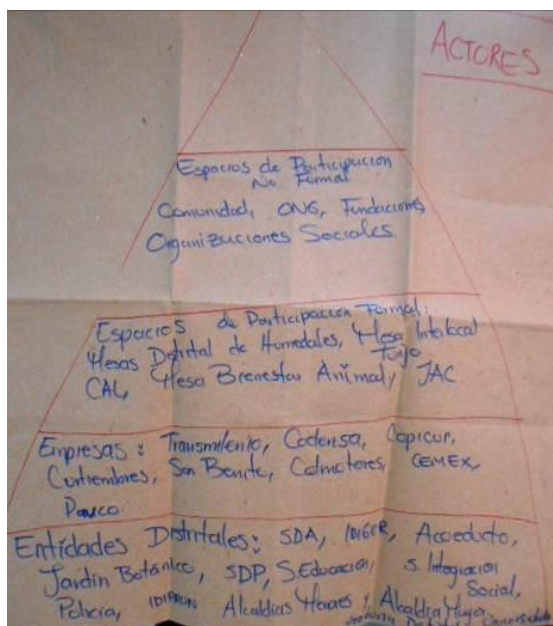 ACTORES
Espacios de Participación
No Formal
Comunidad, ONG, Fundaciones,
Organizaciones Sociales
Espacios de Participación Formal:
Mesas Distrital de Humedales, Mesa Interlocal
Tunjo
CAL, Mesa Bienestar Animal, JAC
Empresas: Transmilenio, Codensa, Copicur,
Curtiembres, San Benito, Colmotores, CEMEX,
Pavco.
Entidades Distritales: SDA, IDIGER, Acueducto,
Jardín Botánico, SDP, S.Educación, S. Integración
Social,
Policía, IDIPRUN Alcaldías